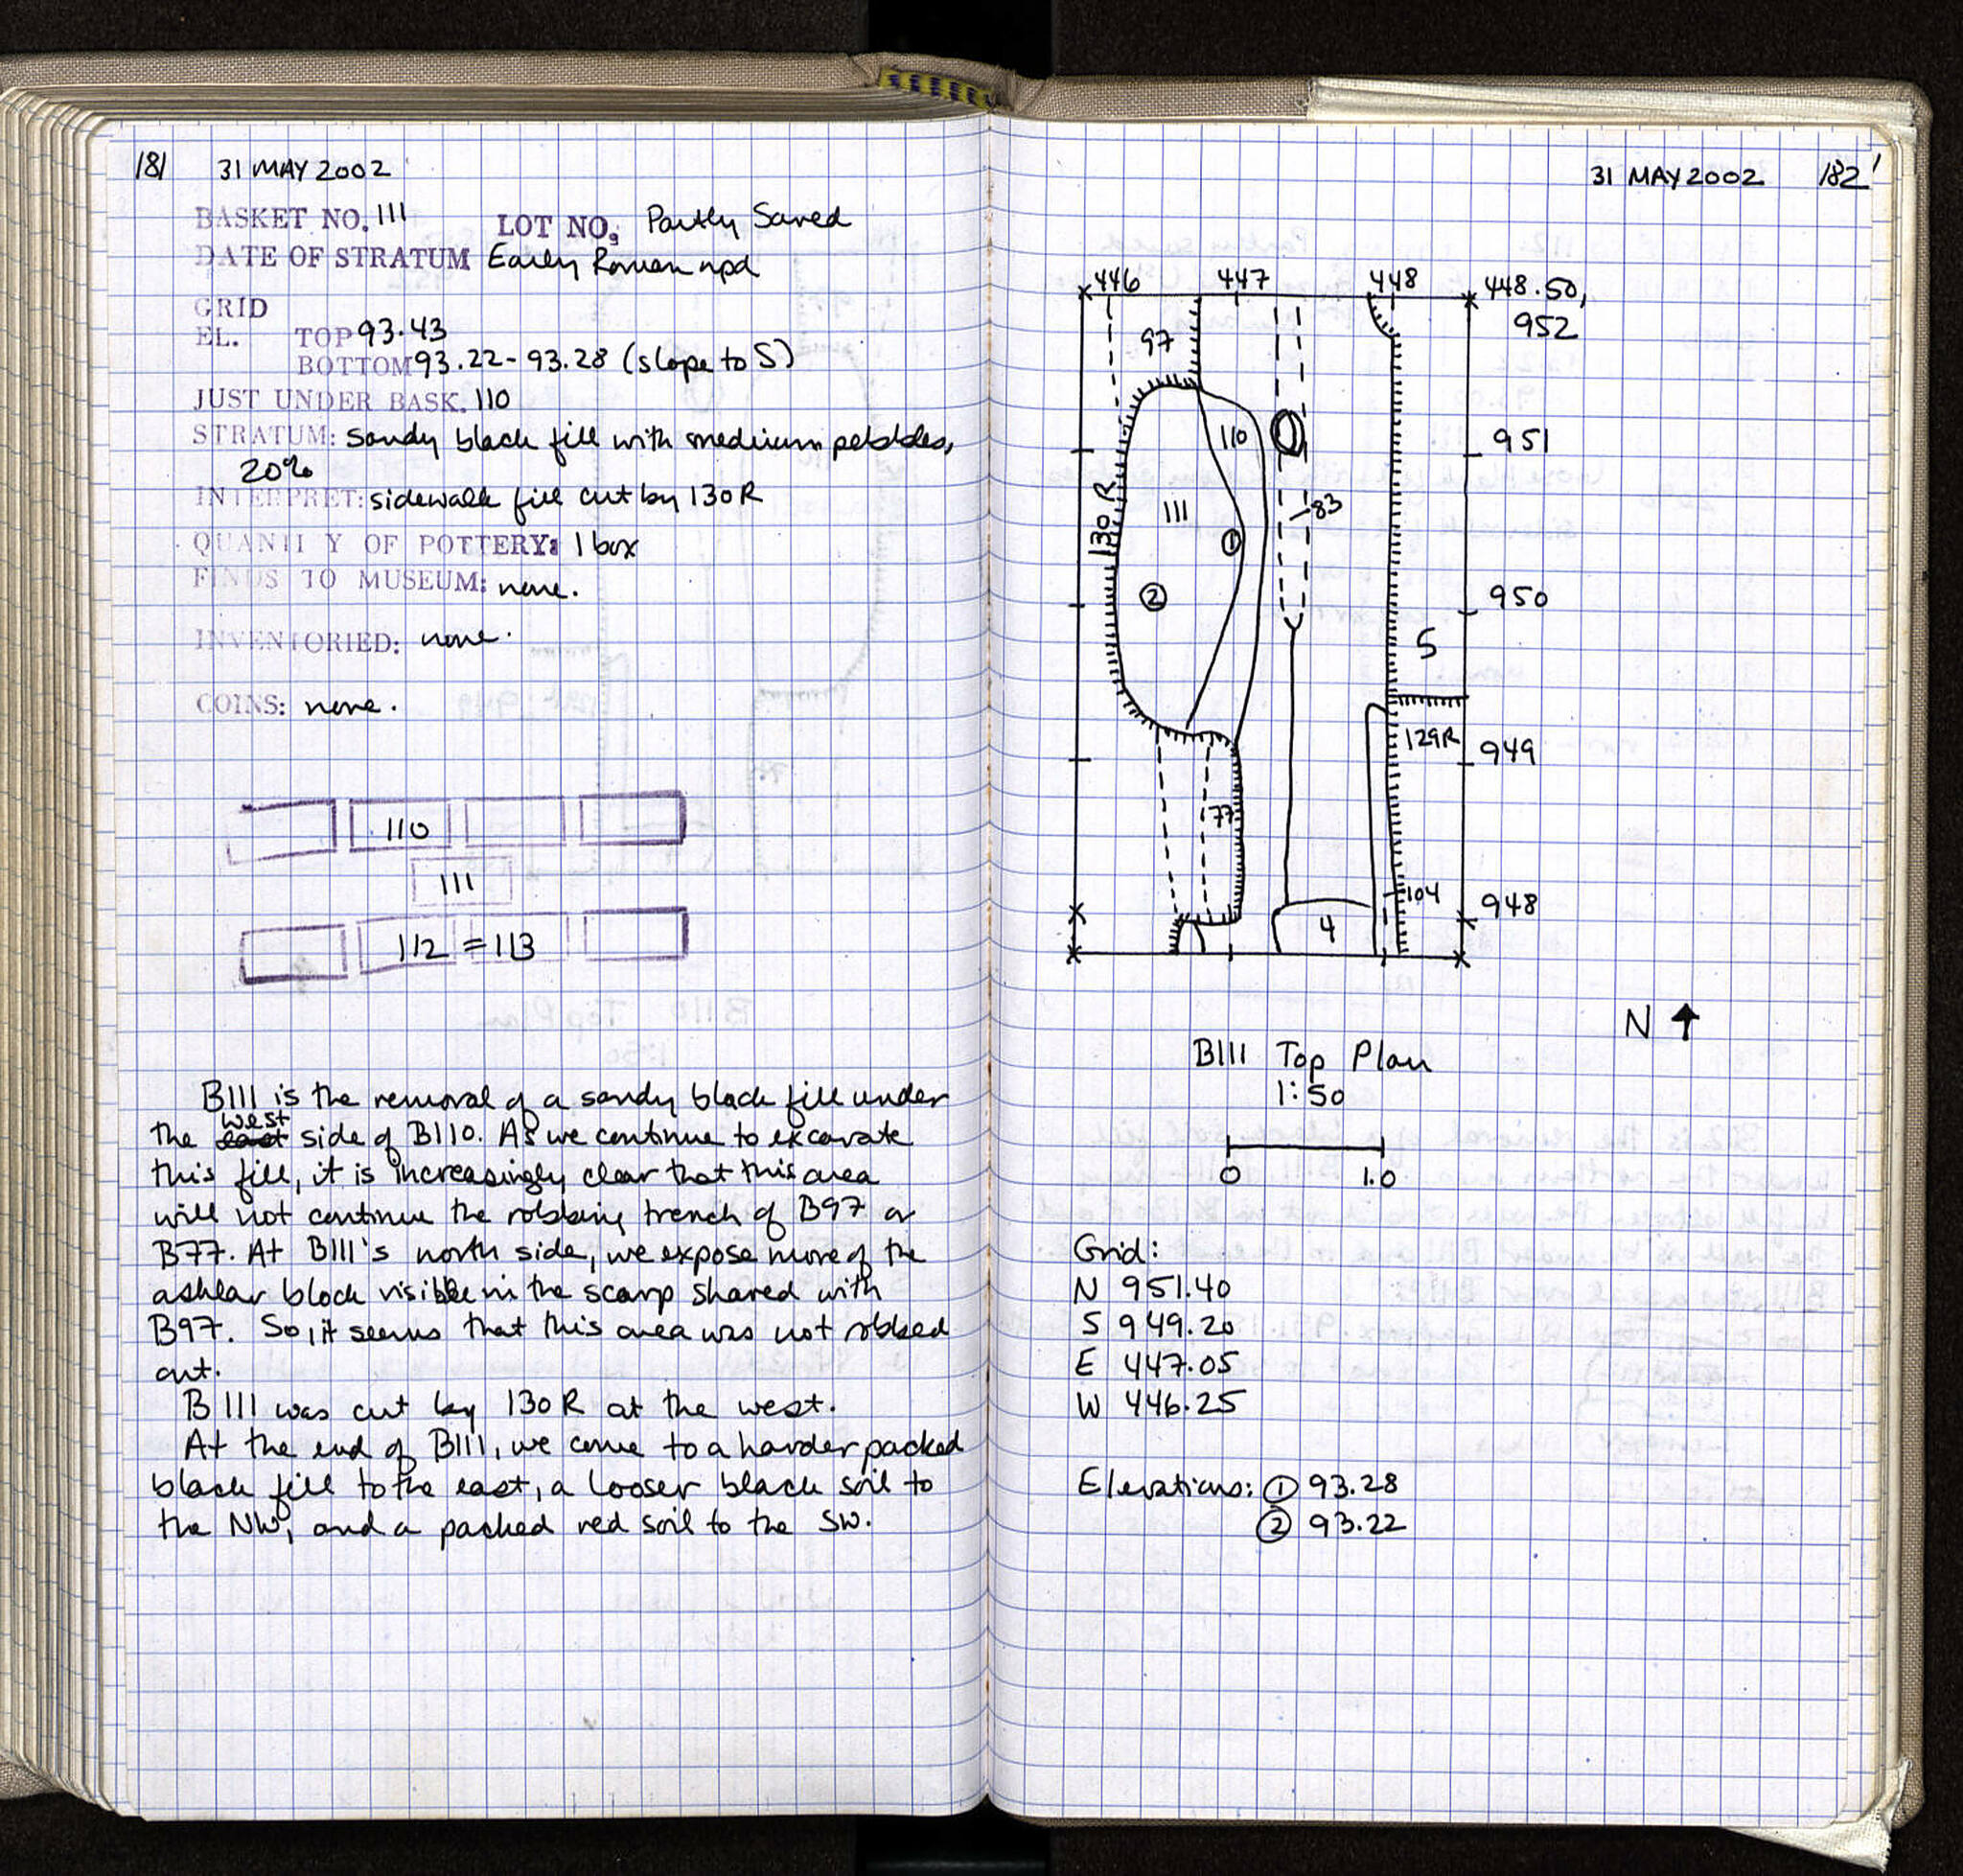 181 31 MAY 2002
BASKET NO. 111 LOT NO. Partly Saved
DATE OF STRATUM Early Roman npd
GRID
EL. TOP 93.43
BOTTOM 93.22-93.28 (slope to S)
JUST UNDER BASK. 110
STRATUM: sandy black fill with medium pebbles,
20%
INTERPRET: sidewalk fill cut by 130R
QUANTI Y OF POTTERY: 1 box
FINDS TO MUSEUM: none.
INVENTORIED: none.
COINS: none.
110
111
112 = 113
B111 is the removal of a sandy black fill under
the east west side of B110. As we continue to excavate
this fill, it is increasingly clear that this area
will not continue the robbing trench of B97 or
B77. At B111's north side, we expose more of the
ashlar block visible in the scarp shared with
B97. So, it seems that this area was not robbed
out.
B111 was cut by 130R at the west.
At the end of B111, we come to a harder packed
black fill to the east, a looser black soil to
the NW, and a packed red soil to the SW.
31 MAY 2002 182
446 447 448 448.50,
952
97
110
951
130 R
111
83
1
2
950
5
129R
949
77
104
948
4
N
B111 Top Plan
1:50
0 1.0
Grid:
N 951.40
S 949.20
E 447.05
W 446.25
Elevations: ① 93.28
② 93.22